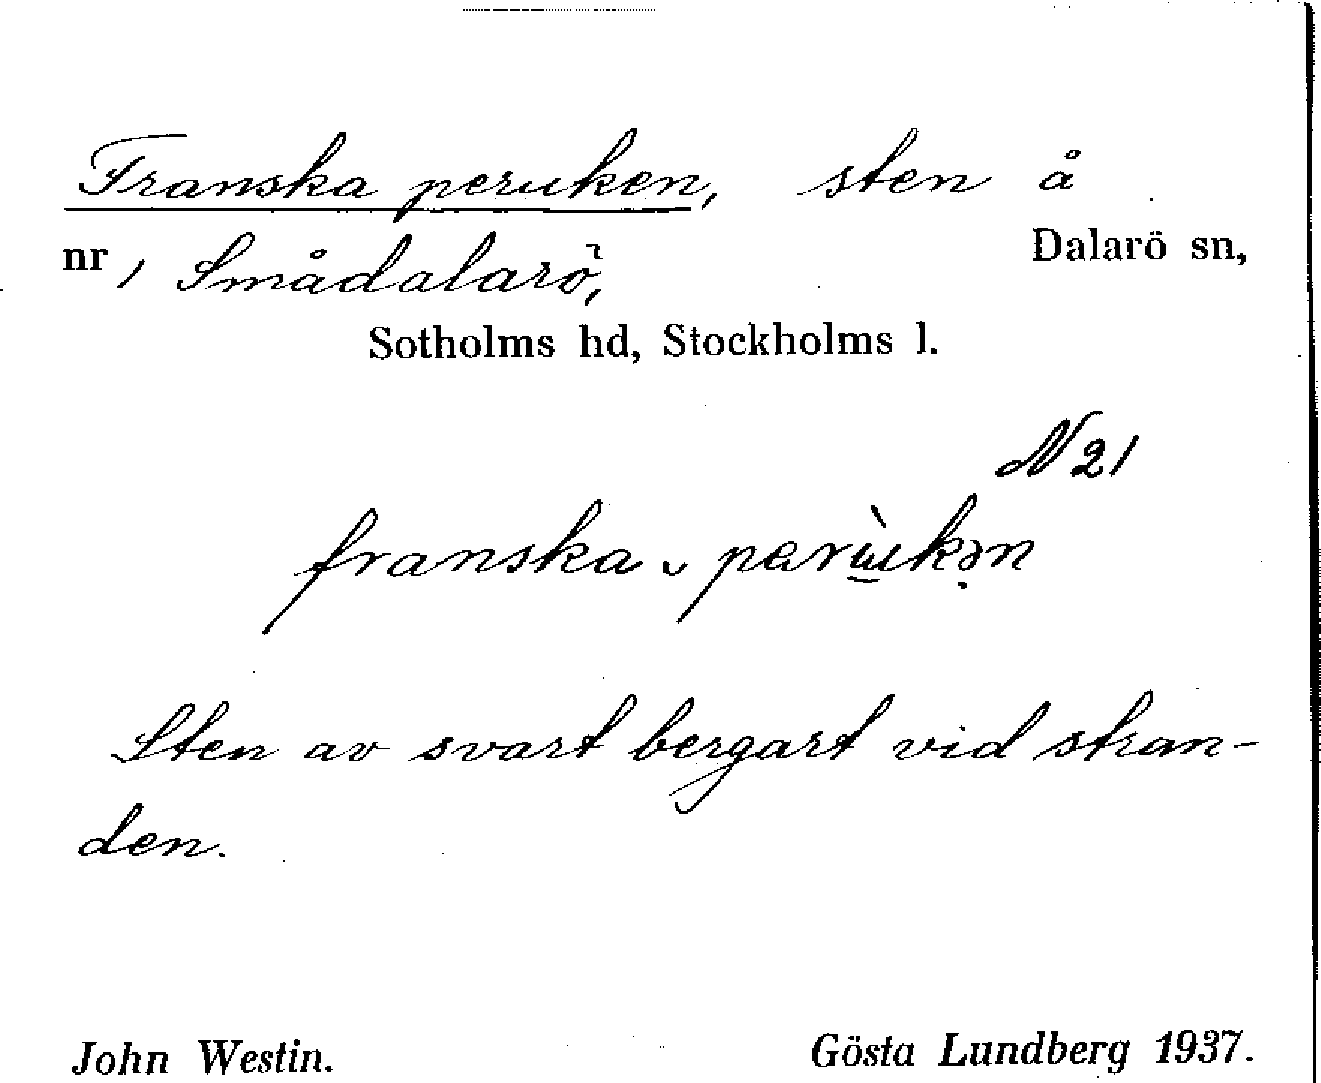 Franska peruken, sten å
nr 1 Smådalarö, Dalarö sn,
Sotholms hd, Stockholms l.
N 21
franska ̮ perùkən
Sten av svart bergart vid stran-
den.
John Westin. Gösta Lundberg 1937.